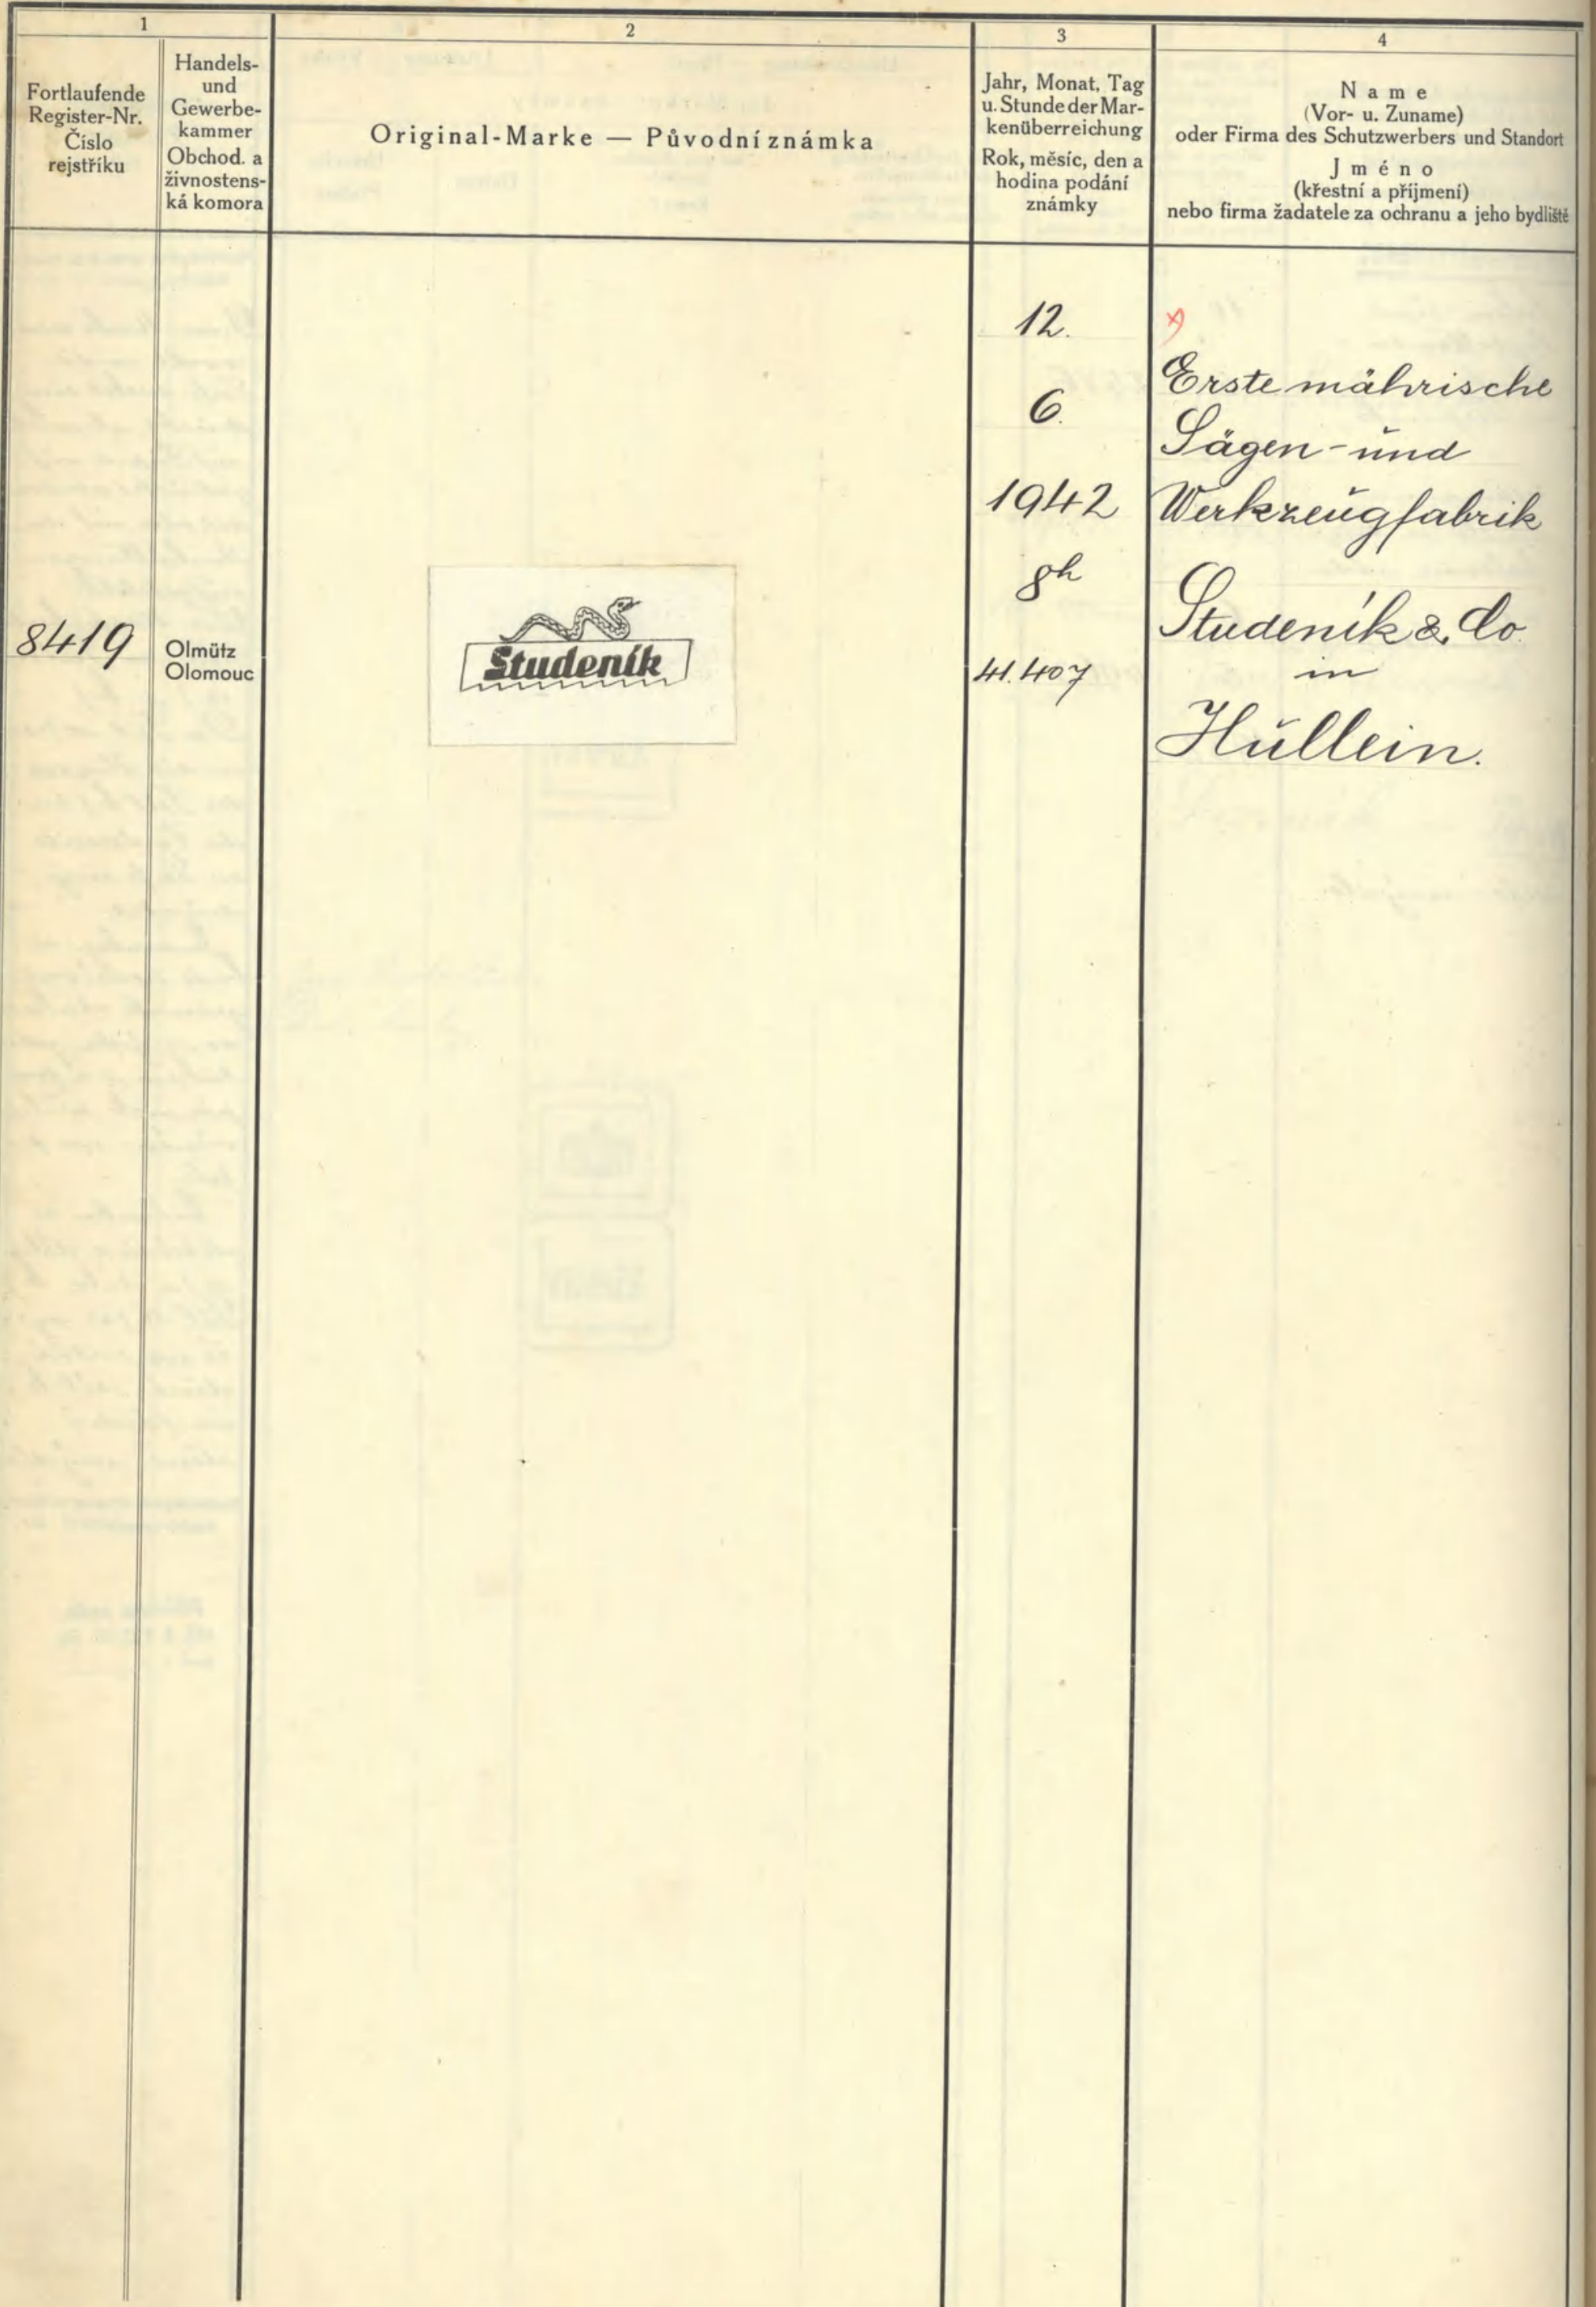 1
Fortlaufende
Register-Nr.
Číslo
rejstříku
Handels-
und
Gewerbe-
kammer
Obchod. a
živnostens-
ká komora
2
Original-Marke — Původní známka
3
Jahr, Monat, Tag
u. Stunde der Mar-
kenüberreichung
Rok, měsíc, den a
hodina podání
známky
4
Name
(Vor- u. Zuname)
oder Firma des Schutzwerbers und Standort
Jméno
(křestní a příjmení)
nebo firma žadatele za ochranu a jeho bydliště
8419
Olmütz
Olomouc
Studeník
12.
6.
1942
8h
41.407
Erste mährische
Sägen- und
Werkzeugfabrik
Studeník & Co
in
Hullein.